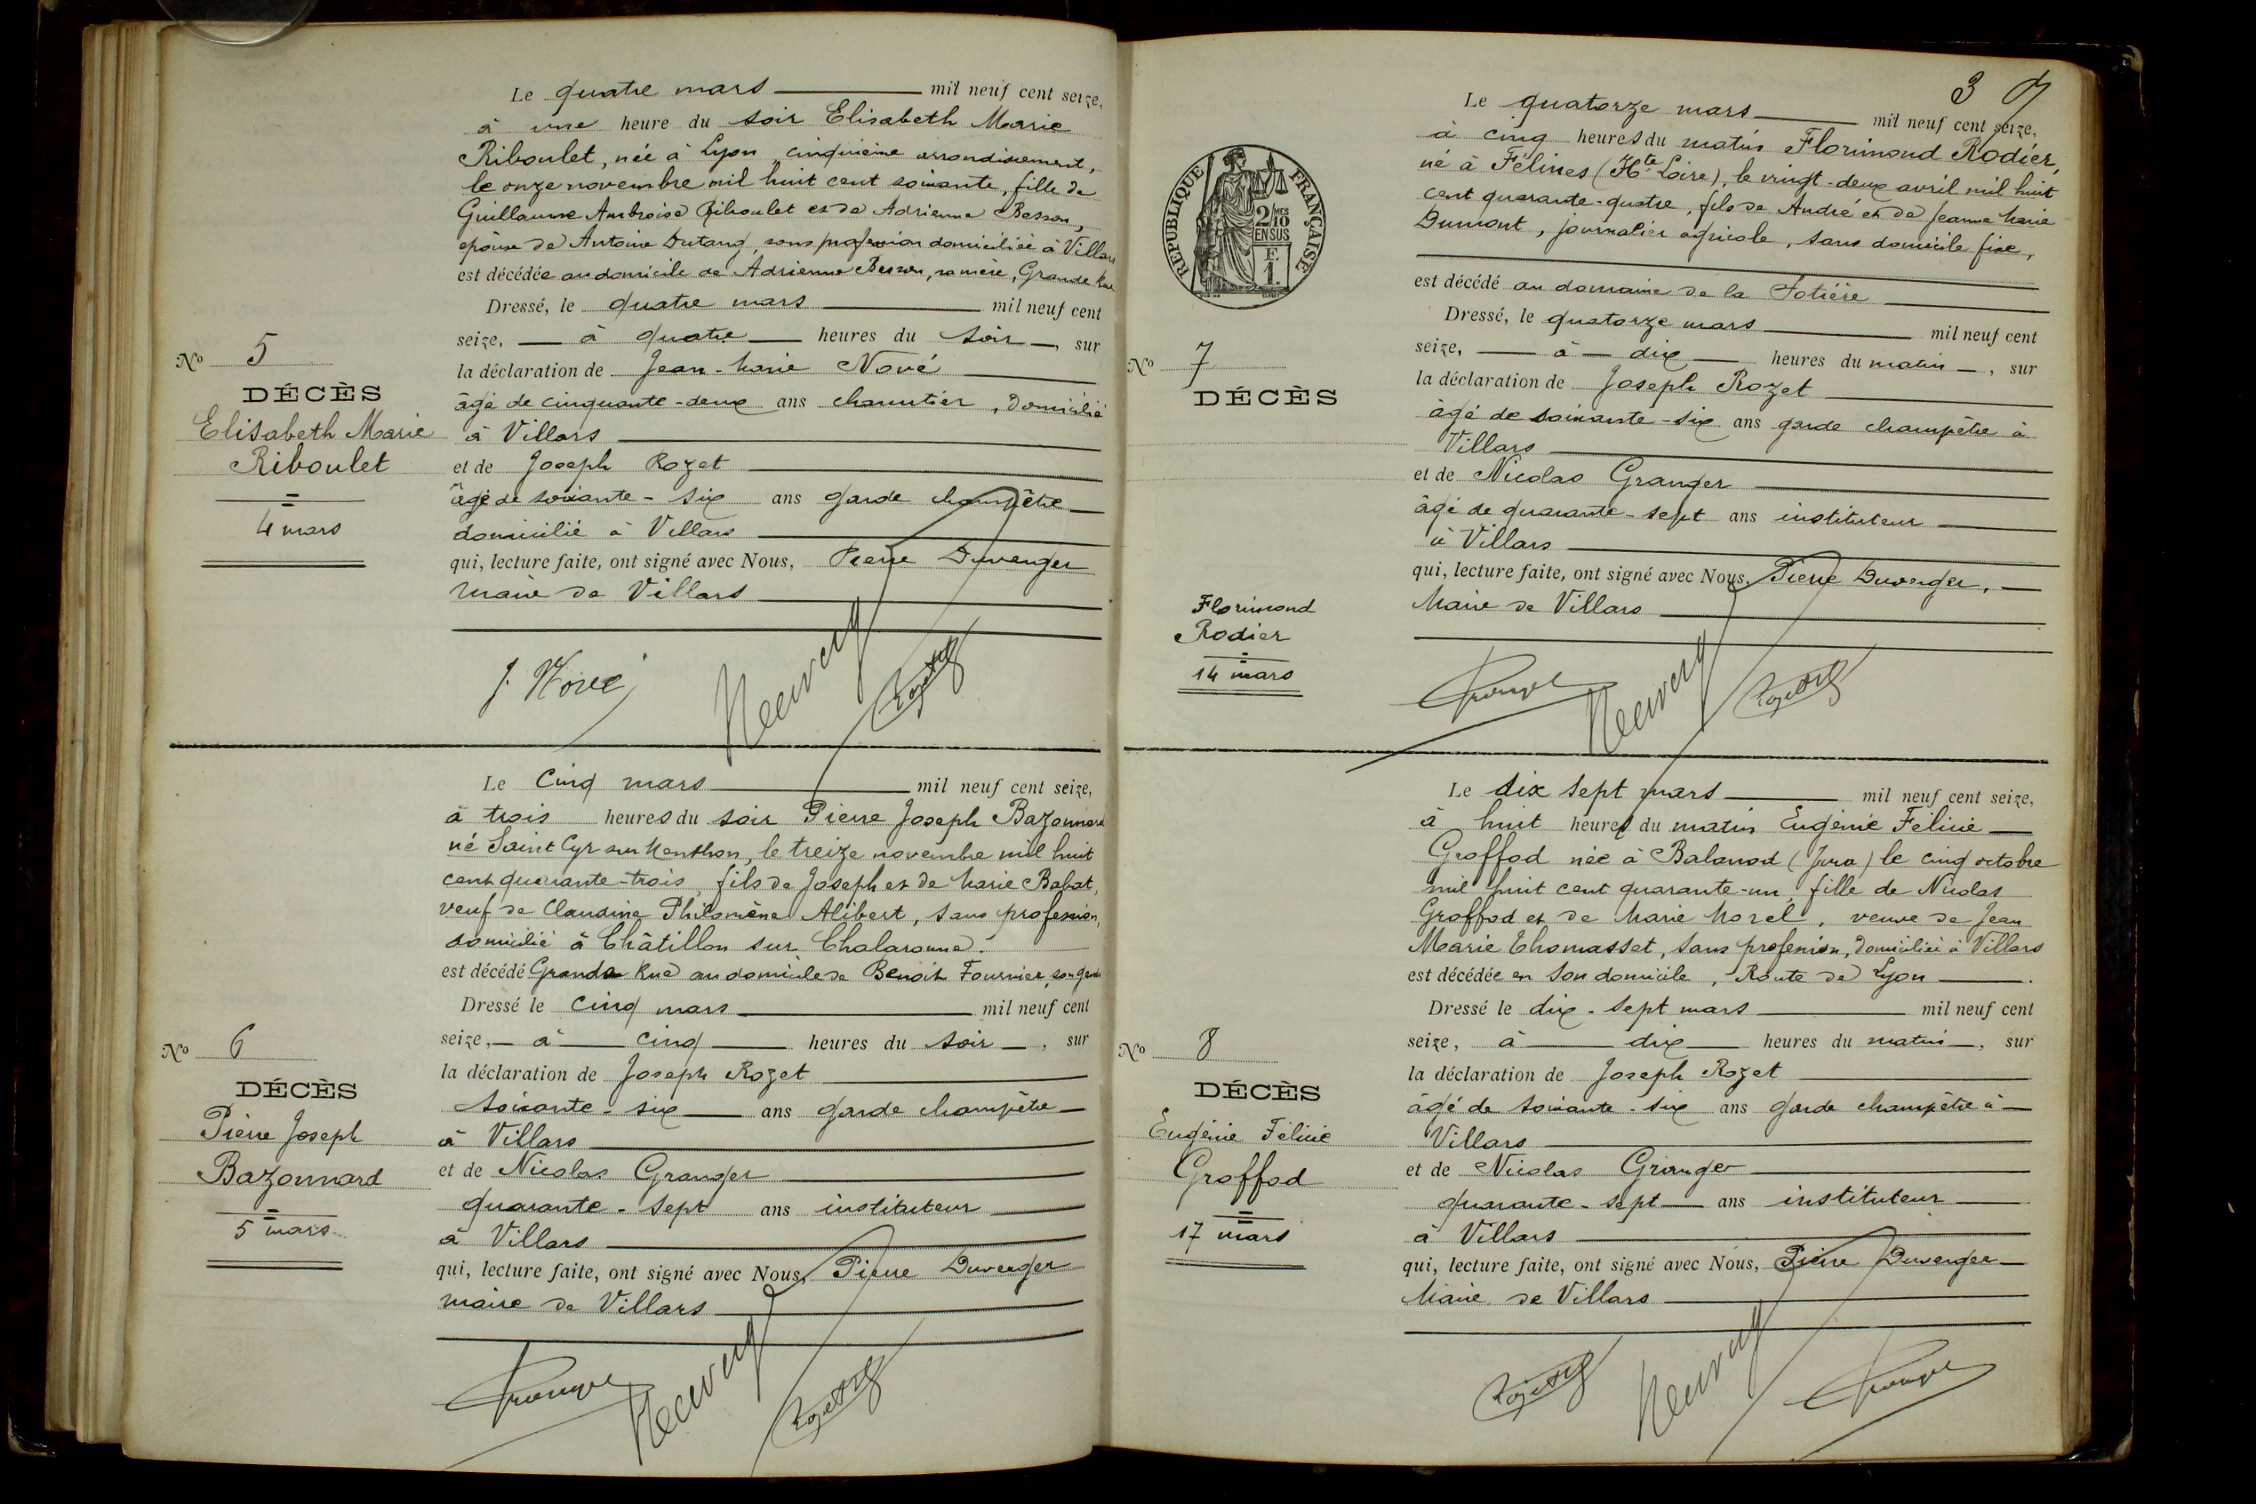 Le quatre mars mil neuf cent seize,
à une heure du soir Elisabeth Marie
Riboulet, née à Lyon cinquième arrondissement,
le onze novembre mil huit cent soixante, fille de
Guillaume Ambroise Riboulet et de Adrienne Besson,
épouse de Antoine Dutang, sans profession domiciliée à Villars
est décédée au domicile de Adrienne Besson, sa mère, Grande Rue
Dressé, le quatre mars mil neuf cent
seize, à quatre heures du soir, sur
la déclaration de Jean-Marie Nové
âgé de cinquante-deux ans charcutier, domicilié
à Villars
et de Joseph Rozet
âgé de soixante-six ans garde champêtre
domicilié à Villars
qui, lecture faite, ont signé avec Nous, Pierre Duverger
maire de Villars
J. Nové
Rozet
No 5
DÉCÈS
Elisabeth Marie
Riboulet
4 mars
Le cinq mars mil neuf cent seize,
à trois heures du soir Pierre Joseph Bazonnard
né Saint Cyr sur Menthon, le treize novembre mil huit
cent quarante-trois, fils de Joseph et de Marie Babat,
veuf de Claudine Philomène Alibert, sans profession,
domicilié à Châtillon sur Chalaronne.
est décédé Grande Rue au domicile de Benoit Fournier, son gendre
Dressé le cinq mars mil neuf cent
seize, à cinq heures du soir, sur
la déclaration de Joseph Rozet
soixante-six ans garde champêtre
à Villars
et de Nicolas Granger
quarante-sept ans instituteur
à Villars
qui, lecture faite, ont signé avec Nous, Pierre Duverger
maire de Villars
Granger
Rozet
No 6
DÉCÈS
Pierre Joseph
Bazonnard
5 mars
3
RÉPUBLIQUE FRANÇAISE
2/10 MES
EN SUS
F.
1.
Le quatorze mars mil neuf cent seize,
à cinq heures du matin Florimond Rodier,
né à Félines (Hte Loire), le vingt-deux avril mil huit
cent quarante-quatre, fils de André et de Jeanne Marie
Dumont, journalier agricole, sans domicile fixe,
est décédé au domaine de la Fotière
Dressé, le quatorze mars mil neuf cent
seize, à dix heures du matin, sur
la déclaration de Joseph Rozet
âgé de soixante-six ans garde champêtre à
Villars
et de Nicolas Granger
âgé de quarante-sept ans instituteur
à Villars
qui, lecture faite, ont signé avec Nous, Pierre Duverger,
Maire de Villars
Granger
Rozet
No 7
DÉCÈS
Florimond
Rodier
14 mars
Le dix sept mars mil neuf cent seize,
à huit heures du matin Eugénie Félicie
Groffod née à Balanod (Jura) le cinq octobre
mil huit cent quarante-un, fille de Nicolas
Groffod et de Marie Morel, veuve de Jean
Marie Thomasset, sans profession, domiciliée à Villars
est décédée en son domicile, Route de Lyon.
Dressé le dix-sept mars mil neuf cent
seize, à dix heures du matin, sur
la déclaration de Joseph Rozet
âgé de soixante-six ans garde champêtre à
Villars
et de Nicolas Granger
quarante-sept ans instituteur
à Villars
qui, lecture faite, ont signé avec Nous, Pierre Duverger
Maire de Villars
Rozet
Granger
No 8
DÉCÈS
Eugénie Félicie
Groffod
17 mars